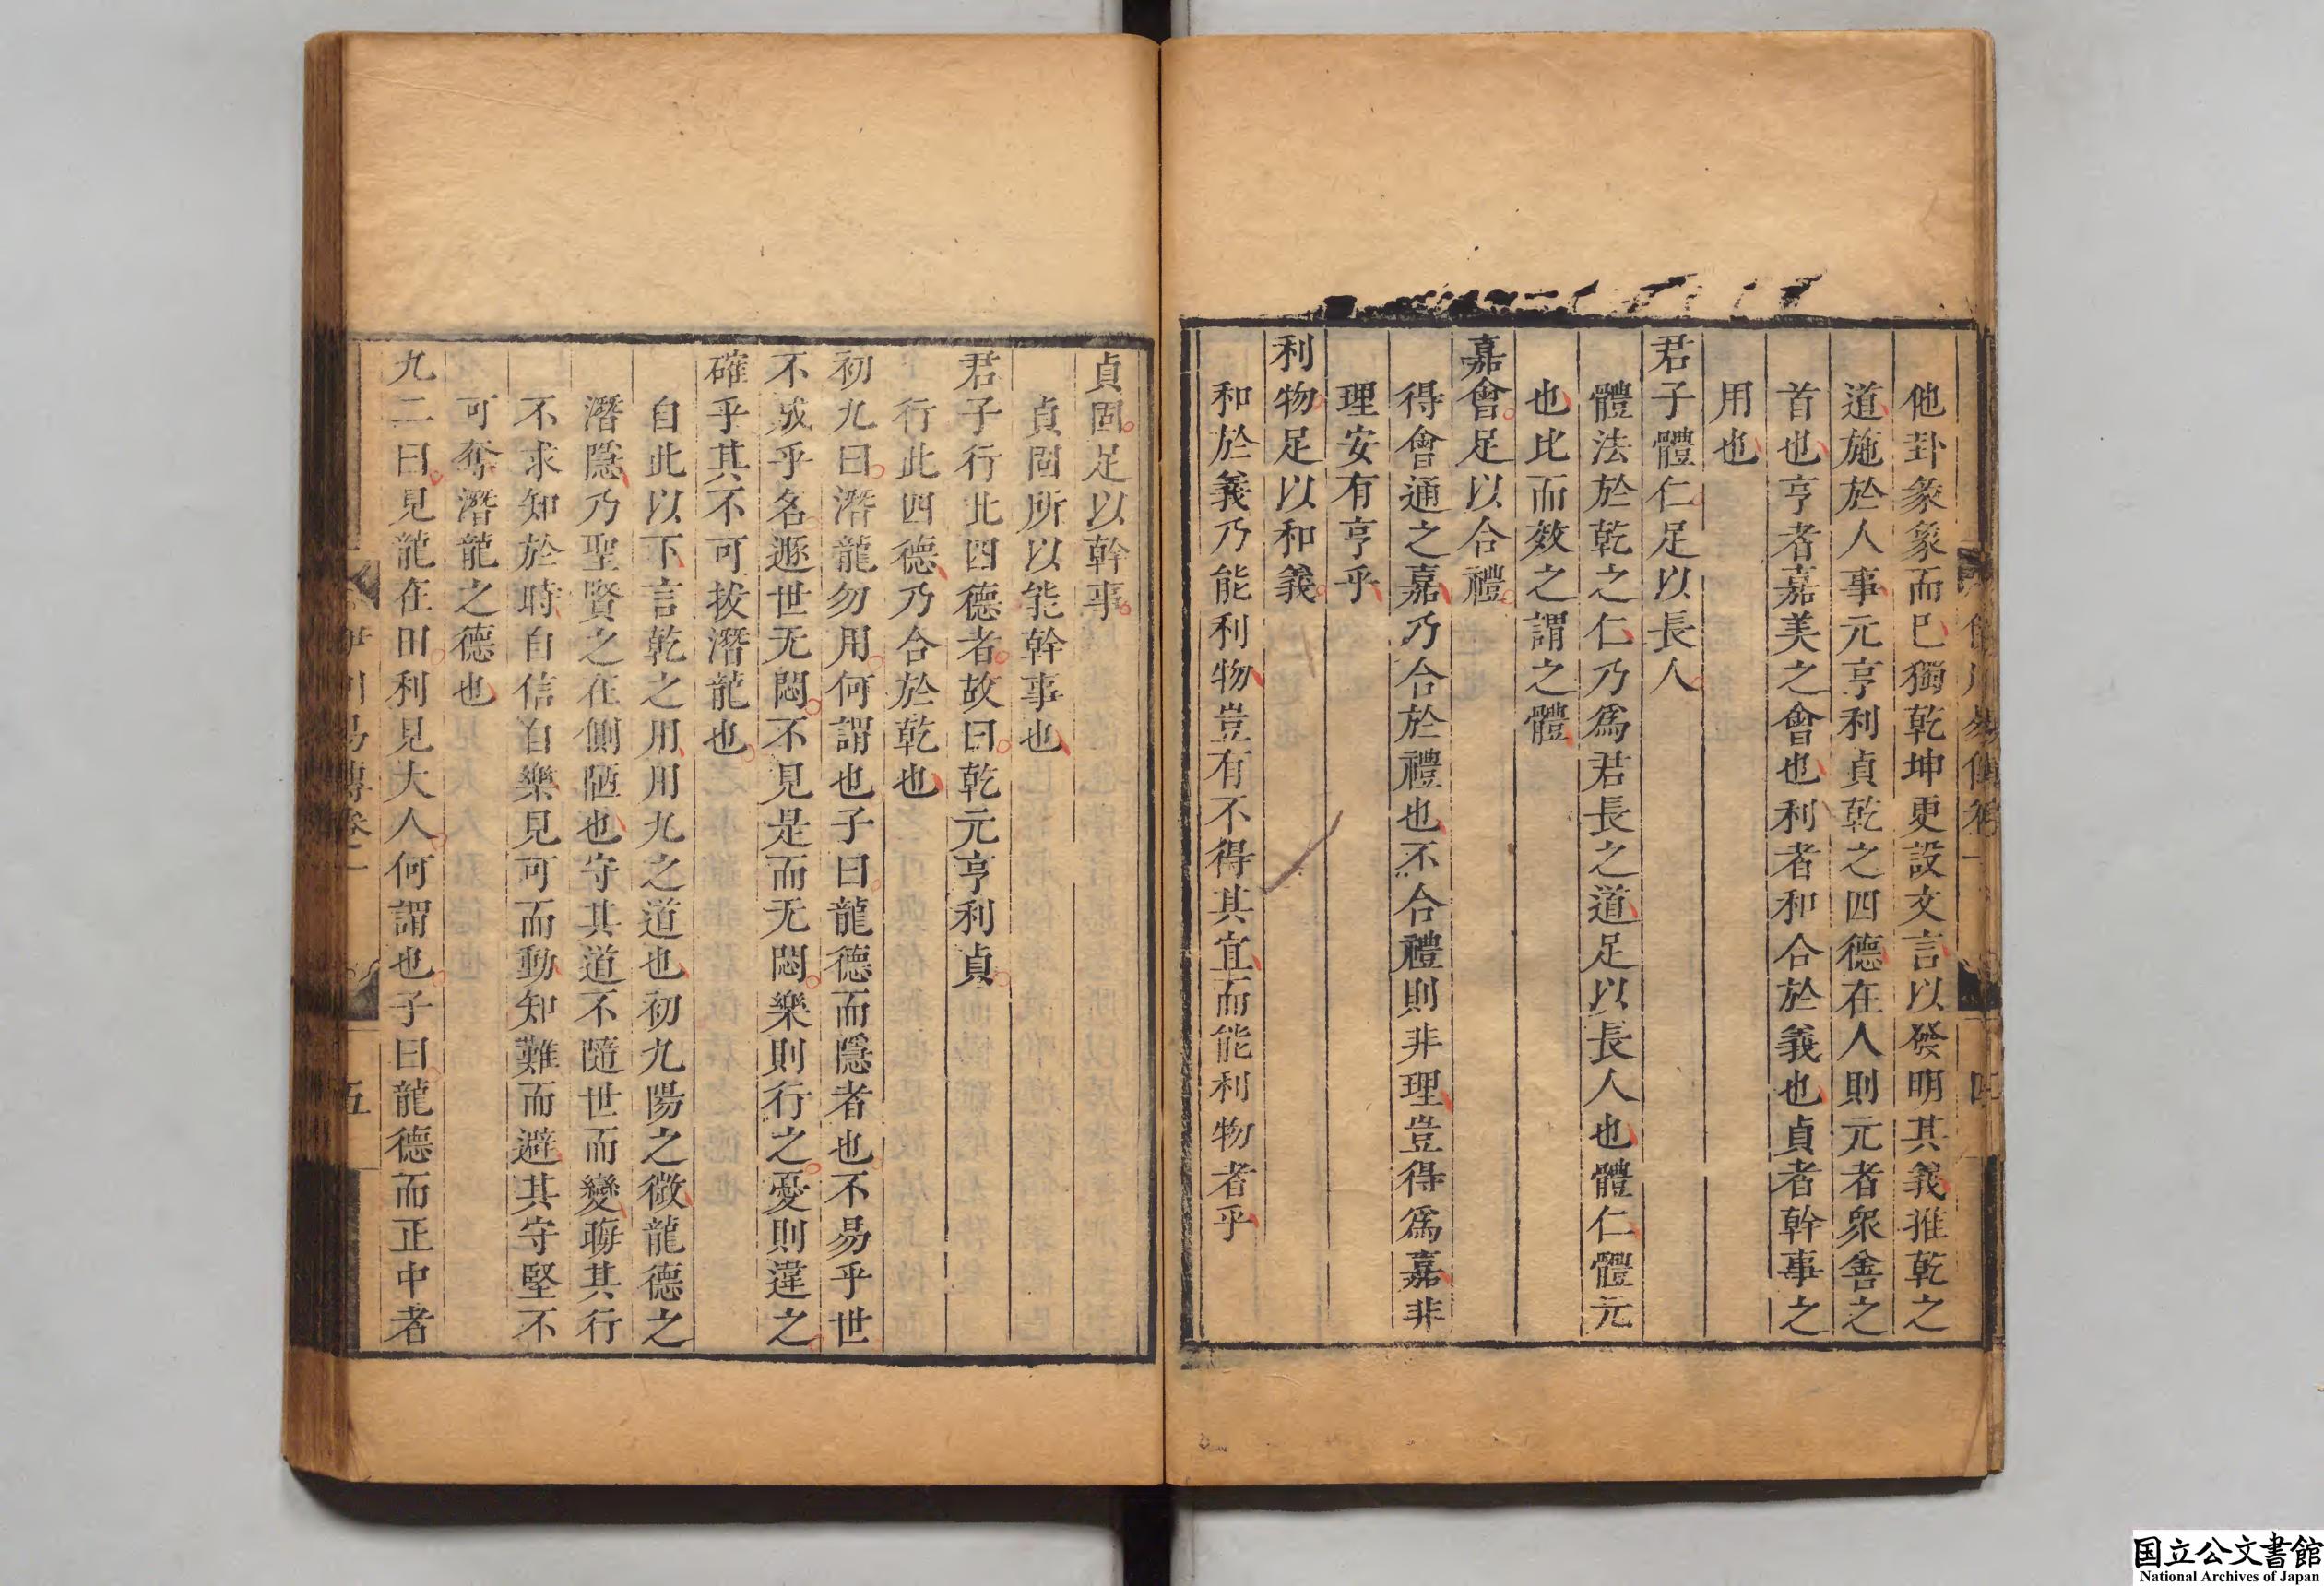 他卦彖象而已獨乾坤更設文言以發明其義推乾之
道施於人事元亨利貞乾之四德在人則元者衆善之
首也亨者嘉美之會也利者和合於義也貞者幹事之
用也
君子體仁足以長人
體法於乾之仁乃爲君長之道足以長人也體仁體元
也比而效之謂之體
嘉會足以合禮
得會通之嘉乃合於禮也不合禮則非理豈得爲嘉非
理安有亨乎
利物足以和義
和於義乃能利物豈有不得其宜而能利物者乎
貞固足以幹事
貞固所以能幹事也
君子行此四德者故曰乾元亨利貞
行此四德乃合於乾也
初九曰潛龍勿用何謂也子曰龍德而隱者也不易乎世
不成乎名遯世无悶不見是而无悶樂則行之憂則違之
確乎其不可拔潛龍也
自此以下言乾之用用九之道也初九陽之微龍德之
潛隱乃聖賢之在側陋也守其道不隨世而變晦其行
不求知於時自信自樂見可而動知難而避其守堅不
可奪潛龍之德也
九二曰見龍在田利見大人何謂也子曰龍德而正中者
易傳卷一
五
国立公文書館
National Archives of Japan